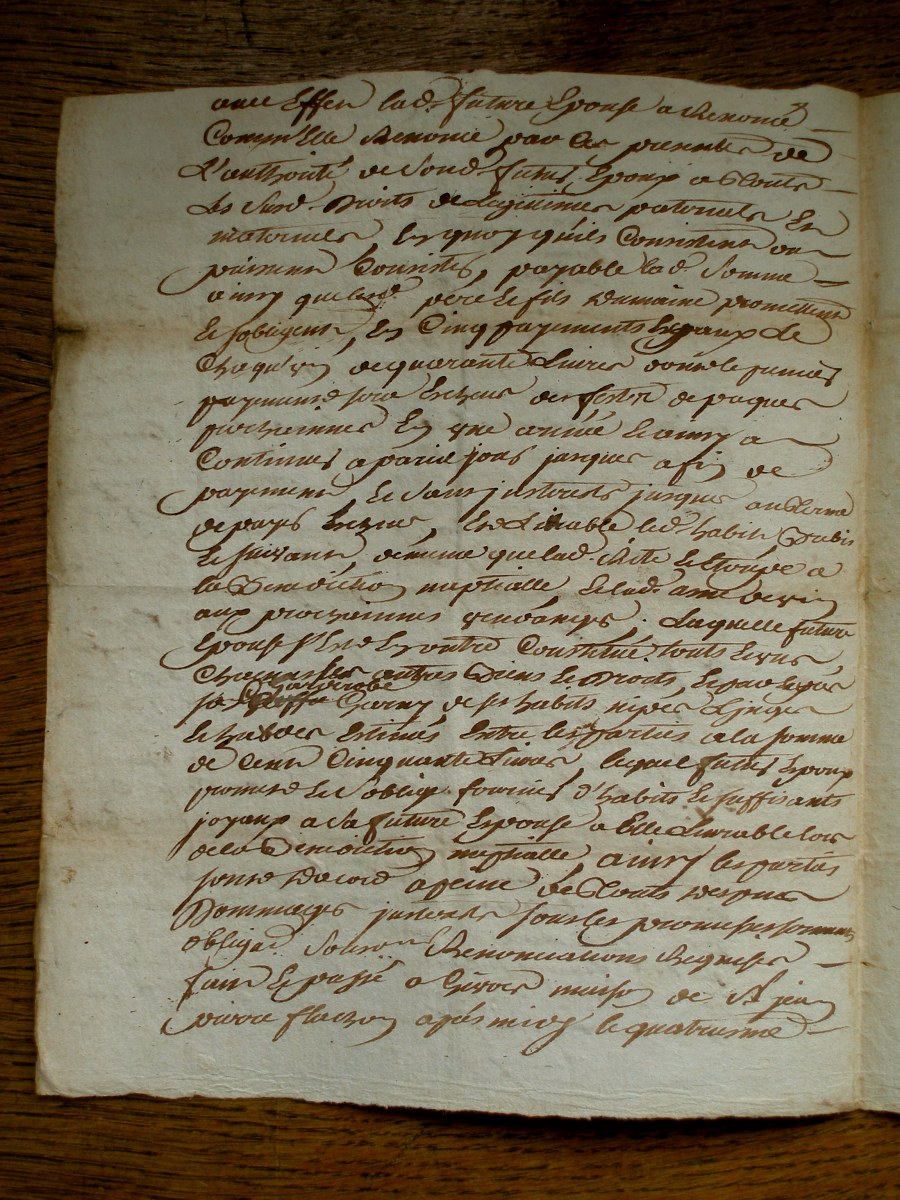 avec Effen lad. future Epouse a Renoncé
Comm'Elle Renonce par Ces presentes de
L'authorité de Sond. futur Epoux a touts
Les Susd. Droits de Legitimes paternels Et
maternels En quoy quils Consistent ou
puissent Consister, payable lad. Somme
ainsy que lesd. pere Et fils promettent
Et sobligent, En Cinq payements Egaux de
Chaqu'un de quarante Livres dont le premier
payement sera Echeus des festes de paques
prochaines En une année Et ainsy a
Continuer a pareil jour jusques a fin de
payement, Et Sans jnterests jusques au terme
de payes Echeus, Et Livrable led. habit
Et suivant, de meme que lad. Et a
la Benediction nuptialle, Et lad. de vin
aux prochaines vendanges. Laquelle future
Epouse s'Est En outre Constitué touts Et uns
Chacuns ses autres Biens Et Droits, Et par Exprés
sa Garderobe Garny de ses habits nipes Linges
Et hardes Estimés Entre les parties a la somme
de Cent Cinquante Livres, Lequel futur Epoux
promet Et S'oblige fournir d'habits Et suffisants
joyaux a Sa future Epouse a Elle Livrable lors
de la Benediction nuptialle, ainsy les parties
sont d'acord a peine de touts depens
Dommages jnterests sous les
obligaõn Renonciations Requises
fait Et passé a maison de Sr jean
pierre flachon apres midy le quatriesme